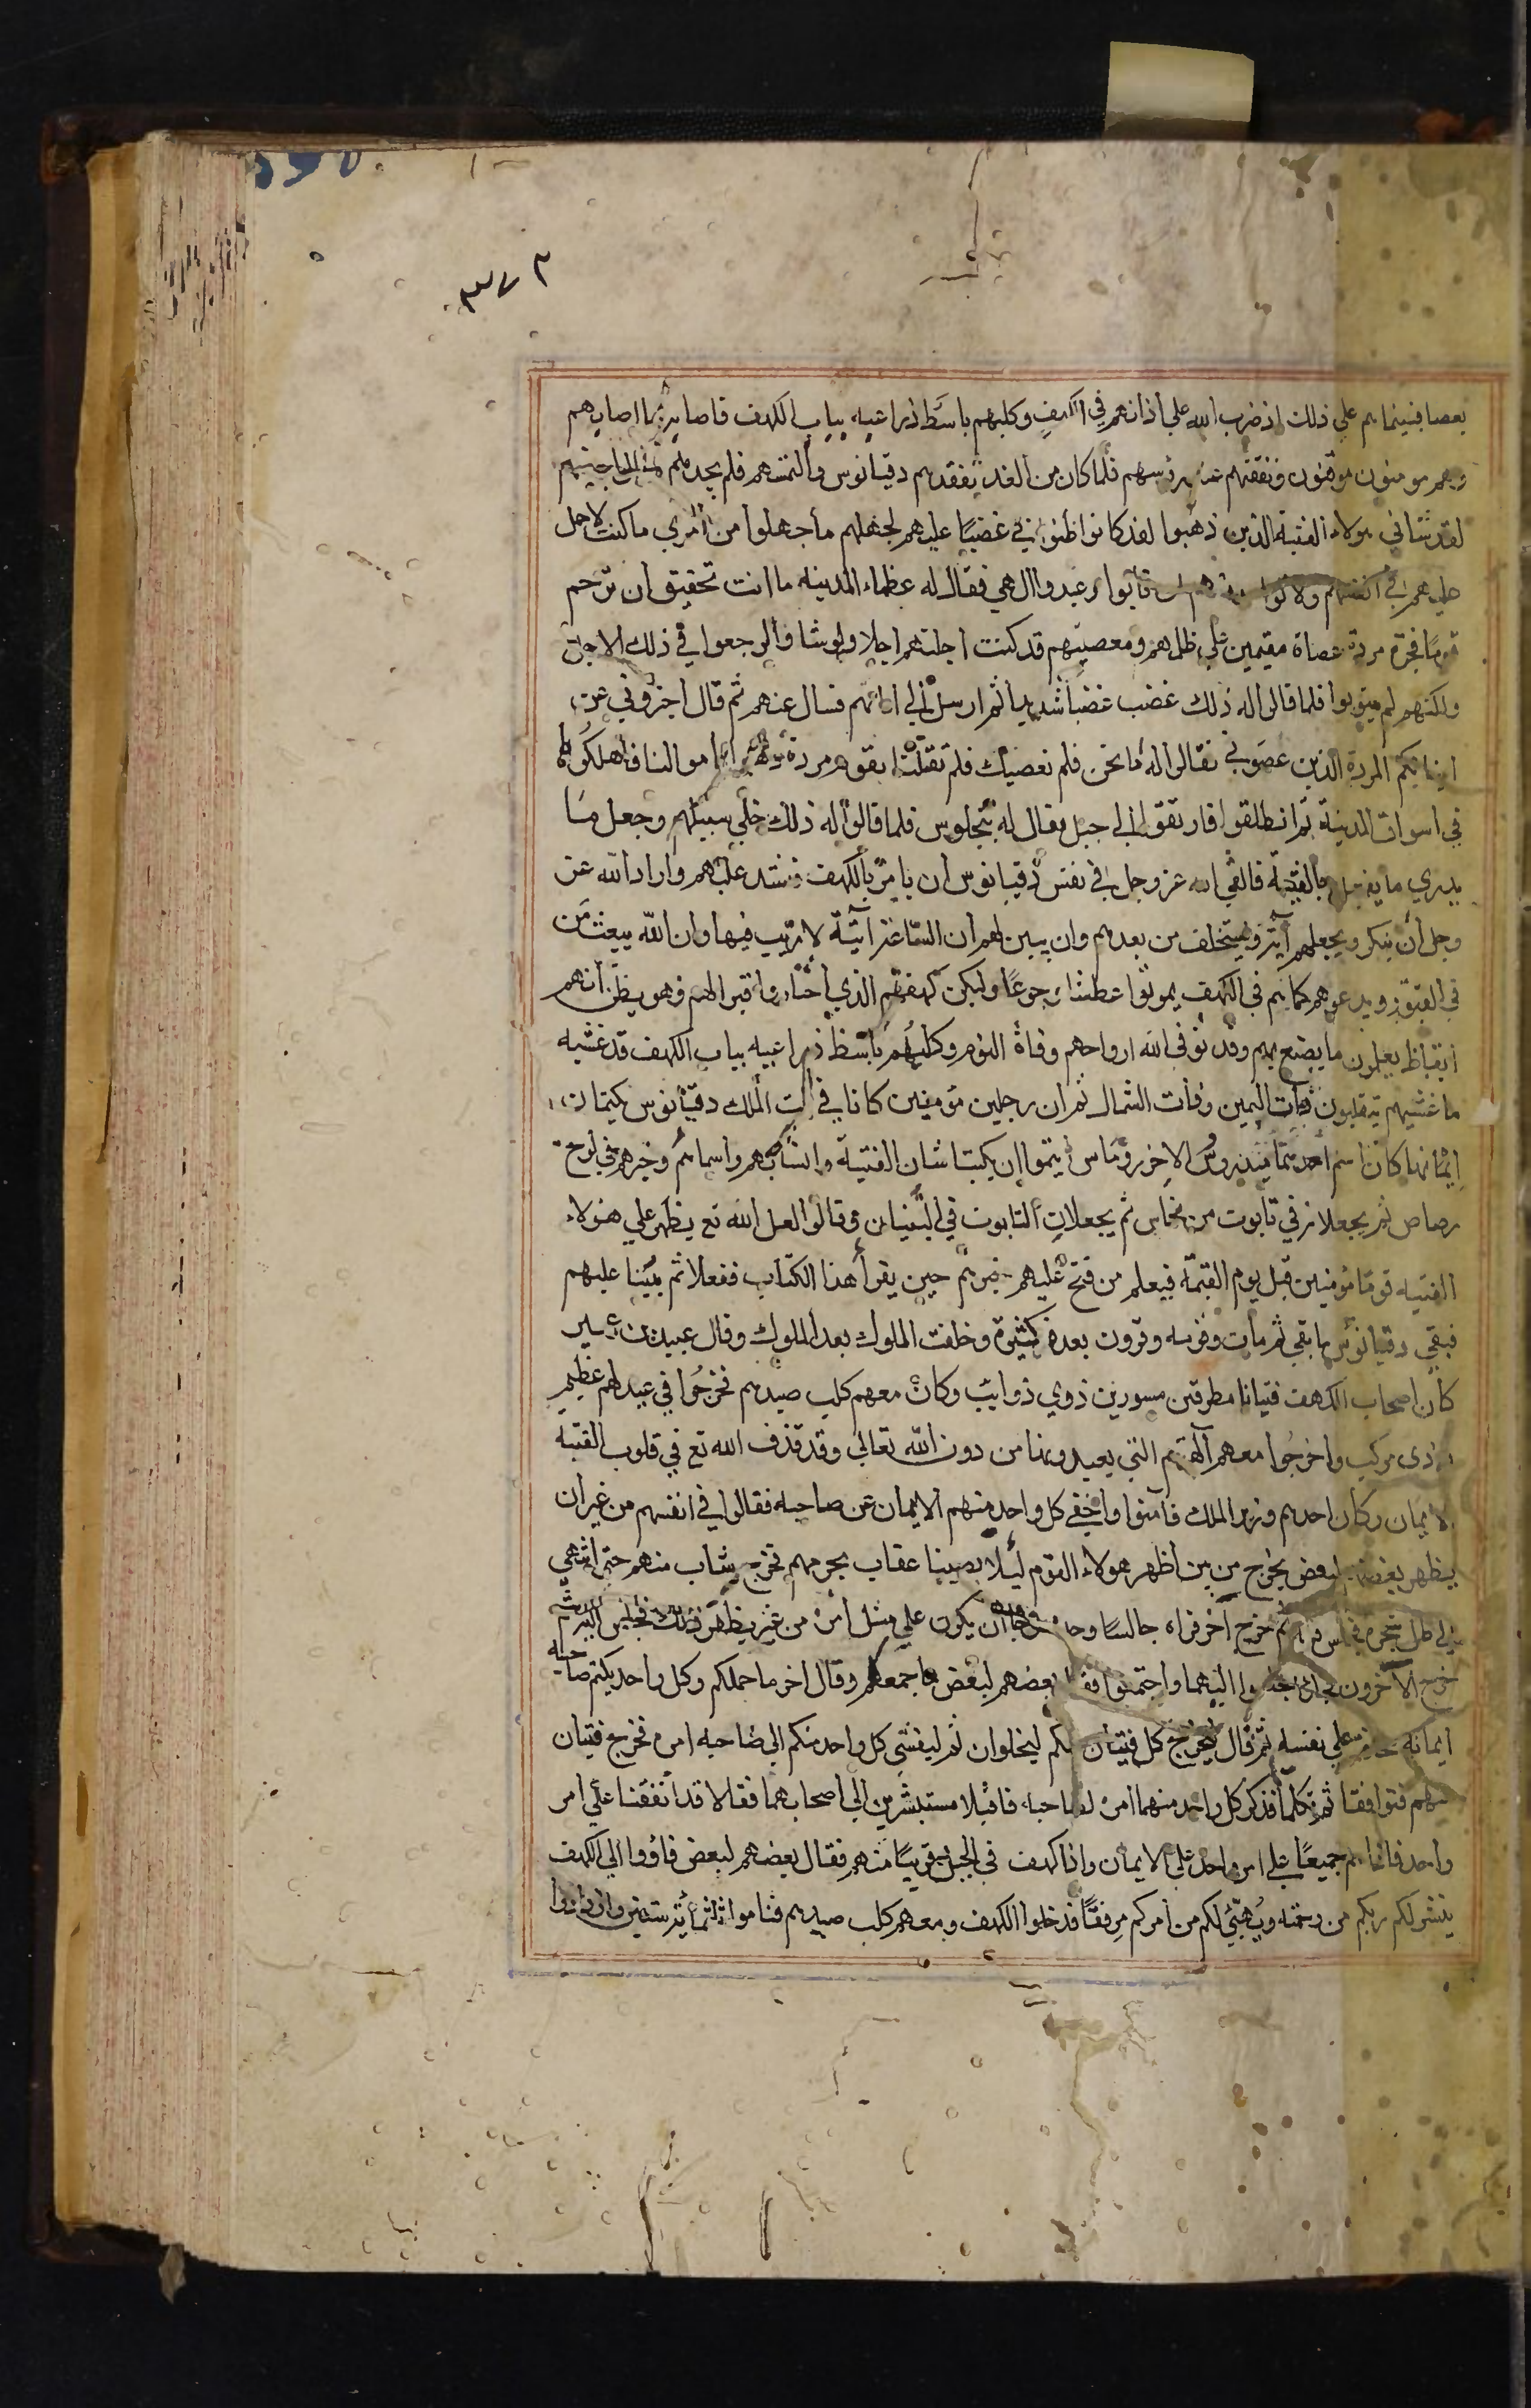 ٣٧٣
بعضا فبينما هم علي ذلك اذ ضرب الله علي اذانهم في الكهف وكلبهم باسط ذراعيه بباب الكهف فاصابه ما اصابهم
وهم مومنون موقنون ونفقتهم عند رؤسهم فلما كان من الغد تفقدهم دقيانوس والتمسهم فلم يجدهم
لقد ساني هولاء الفتية الذين ذهبوا لقد كانوا ظنوا ان بي غضبا عليهم لجهلهم ما جهلوا من امري ما كنت لاحمل
عليهم في انفسهم ولا تابوا وعبدوا الهي فقال له عظماء المدينه ما انت تحقيق ان ترحم
قوما فجرة مردة عصاة مقيمين علي ظلمهم ومعصيتهم قد كنت اجلتهم اجلا ولو شاؤا لرجعوا في ذلك الاجل
ولكنهم لم يتوبوا فلما قالوا له ذلك غضب غضبا شديدا ثم ارسل الي ابائهم فسال عنهم ثم قال اخبروني عن
ابنائكم المردة الذين عصوني فقالوا له اما نحن فلم نعصيك فلم تقتلنا بقوم مردة اموالنا فاهلكوها
في اسواق المدينة ثم انطلقوا فارتقوا الي جبل يقال له بنجلوس فلما قالوا له ذلك خلي سبيلهم وجعل ما
يدري ما يفعل بالفتية فالقي الله عز وجل في نفس دقيانوس ان يامر بالكهف فيسد عليهم واراد الله عز
وجل ان يبكر ويجعلهم آية ويستخلف من بعدهم وان يبين لهم ان الساعة آتية لا ريب فيها وان الله يبعث من
في القبور ويدعوهم كما هم في الكهف يموتوا عطشا وجوعا وليكن كهفهم الذي اختاروا قبرا لهم وهو يظن انهم
ايقاظ يعلمون ما يصنع بهم وقد توفي الله ارواحهم وفاة النوم وكلبهم باسط ذراعيه بباب الكهف قد غشيه
ما غشيهم يتقلبون ذات اليمين وذات الشمال ثم ان رجلين مؤمنين كانا في بيت الملك دقيانوس يكتمان
ايمانهما كان اسم احدهما بيندروس والاخر روماس ايتموا ان يكتبا شان الفتية وانسابهم واسمائهم وخبرهم في لوح
رصاص ثم يجعلانه في تابوت من نحاس ثم يجعلان التابوت في البنيان وقالوا لعل الله تع يظهر علي هولاء
الفتيه قوما مؤمنين قبل يوم القيمة فيعلم من فتح عليهم خبرهم حين يقرأ هذا الكتاب ففعلا ثم بنينا عليهم
فبقي دقيانوس ما بقي ثم مات وقومه وقرون بعده كثيرة وخلفت الملوك بعد الملوك وقال عبيد بن عمير
كان اصحاب الكهف فتيانا مطرقين مسورين ذوي ذوايب وكان معهم كلب صيدهم فخرجوا في عيد لهم عظيم
في زي مركب واخرجوا معهم آلهتهم التي يعبدونها من دون الله تعالي وقد قذف الله تع في قلوب الفتية
الايمان وكان احدهم وزير الملك فآمنوا واخفي كل واحد منهم الايمان عن صاحبه فقالوا في انفسهم من غير ان
يظهر بعضهم لبعض نخرج من بين اظهر هولاء القوم ليلا يصيبنا عقاب بجرمهم فخرج شاب منهم حتي انتهي
الي ظل شجرة فجلس فيه ثم خرج اخر فراه جالسا وحده فرجا ان يكون علي مثل امره من غير يظهر ذلك فجلس اليه ثم
خرج الآخرون فجاؤا فجلسوا اليهما واجتمعوا فقال بعضهم لبعض ما جمعكم وقال اخر ما حملكم وكل واحد يكتم صاحبه
ايمانه مخافة علي نفسه ثم قال ليخرج كل فتيان منكم ليخلوان ثم ليفشي كل واحد منكم الي صاحبه امره فخرج فتيان
منهم فتوافقا ثم تكلما فذكر كل واحد منهما امره لصاحبه فاقبلا مستبشرين الي اصحابهما فقالا قد اتفقنا علي امر
واحد فاذا هم جميعا علي امر واحد علي الايمان واذا كهف في الجبل قريبا منهم فقال بعضهم لبعض فاؤوا الي الكهف
ينشر لكم ربكم من رحمته ويهيئ لكم من امركم مرفقا فدخلوا الكهف ومعهم كلب صيدهم فناموا ثلثمائة سنين وازدادوا